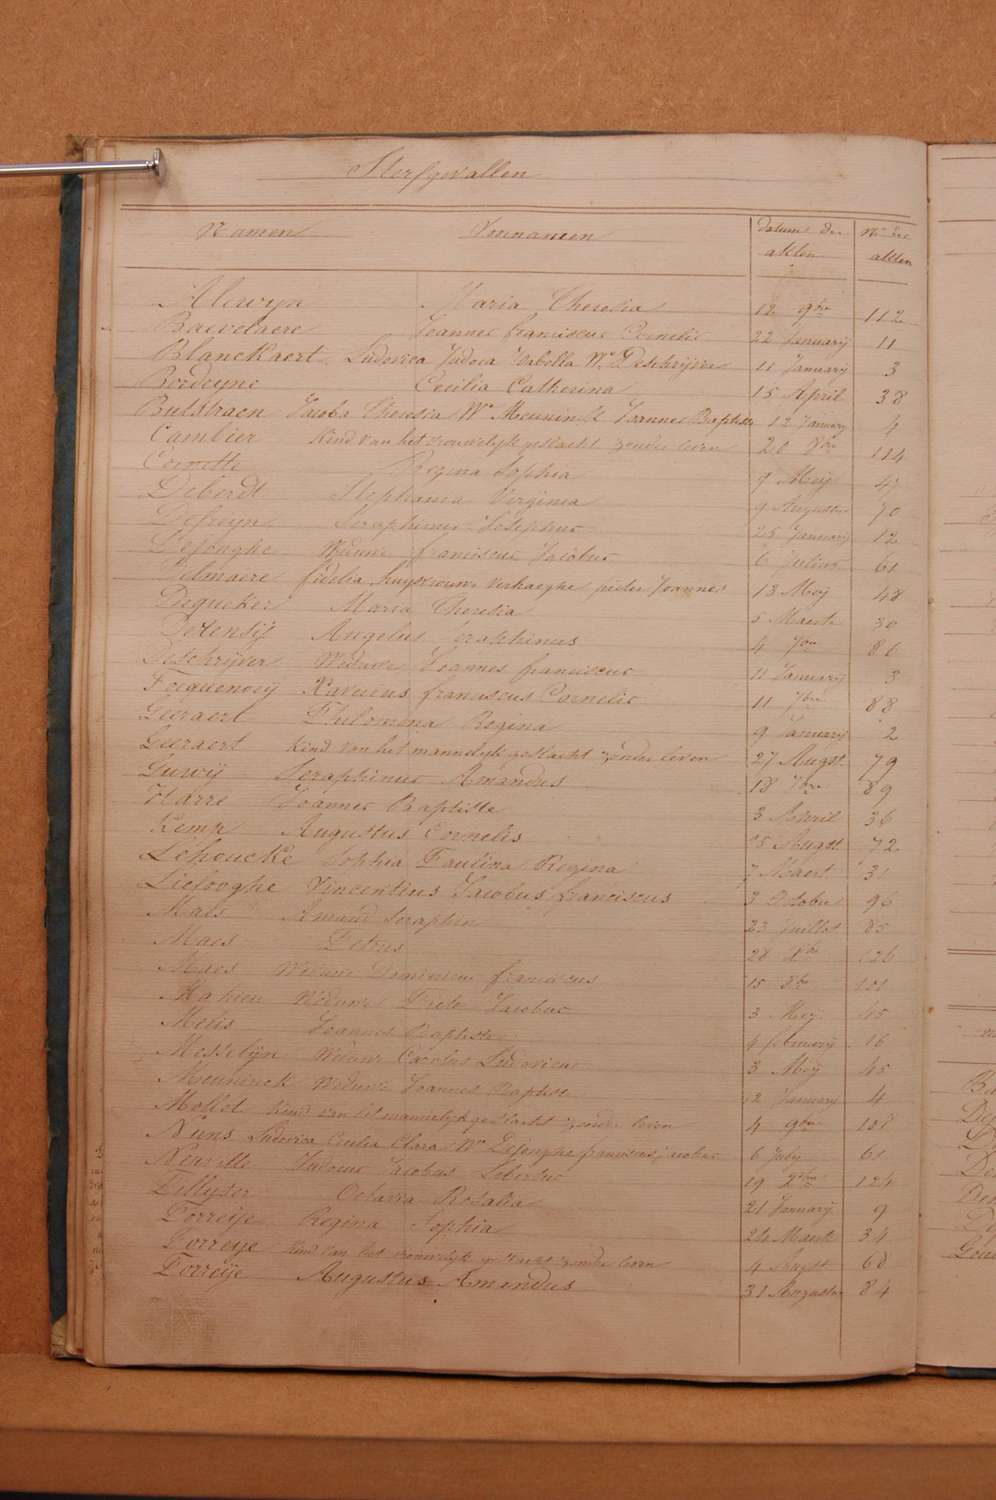 Sterfgevallen
Namen Voornamen Datum der akten No der akten
Alewyn Maria Theresia 12 9bre 112
Baevelaere Joannes franciscus Cornelis 22 January 11
Blanckaert Ludovica Judoca Isabella We Deschrijver 11 January 3
Bordeyne Cecilia Catherina 15 April 38
Bulstraen Jacoba Theresia We Meuninck Joannes Baptiste 12 January 4
Cambier Kind van het vrouwelijk geslacht zonder leven 20 114
Cornette Regina Sophia 9 Meij 47
Deberdt Stephania Virginia 9 Augustus 70
Defreyn Seraphinus Josephus 25 January 12
Dejonghe Weduwe franciscus Jacobus 6 Julius 61
fidelia huysvrouw Verhaeghe pieter Joannes 13 Meij 48
Dequeker Maria Theresia 5 Maert 30
Angelus Seraphinus 4 7bre 86
Deschrijver Weduwe Joannes franciscus 11 January 3
Xaverius franciscus Cornelis 11 7bre 88
Geeraert Philomena Regina 9 January 2
Geeraert Kind van het mannelijk geslacht zonder leven 27 Augst 79
Guwij Seraphinus Amandus 18 7bre 89
Harre Joannes Baptiste 3 April 36
Kemp Augustus Cornelis 15 Augst 72
Lehoucke Sophia Paulina Regina 7 Maert 31
Lielooghe Vincentius Jacobus franciscus 3 October 96
Maes Amand Seraphin 23 85
Maes Petrus 28 Xbre 126
Maes Weduwe franciscus 15 8bre 101
Mahieu Weduwe Pieter Jacobus 3 Mey 45
Melis Joannes Baptiste 4 february 16
Messelijn Weduwe Carolus Ludovicus 3 Meij 45
Meuninck Weduwe Joannes Baptiste 12 January 4
Mollet Kind van het mannelijk geslacht zonder leven 4 9bre 108
Nuns Ludovica Cecilia Clara We Dejonghe franciscus jacobus 6 July 61
Neuville Judocus Jacobus 19 Xbre 124
Octavia Rosalia 21 January 9
Porreije Regina Sophia 24 Maert 34
Porreije Kind van het vrouwelijk geslacht zonder leven 4 Augst 68
Porreije Augustus Amandus 31 Augustus 84